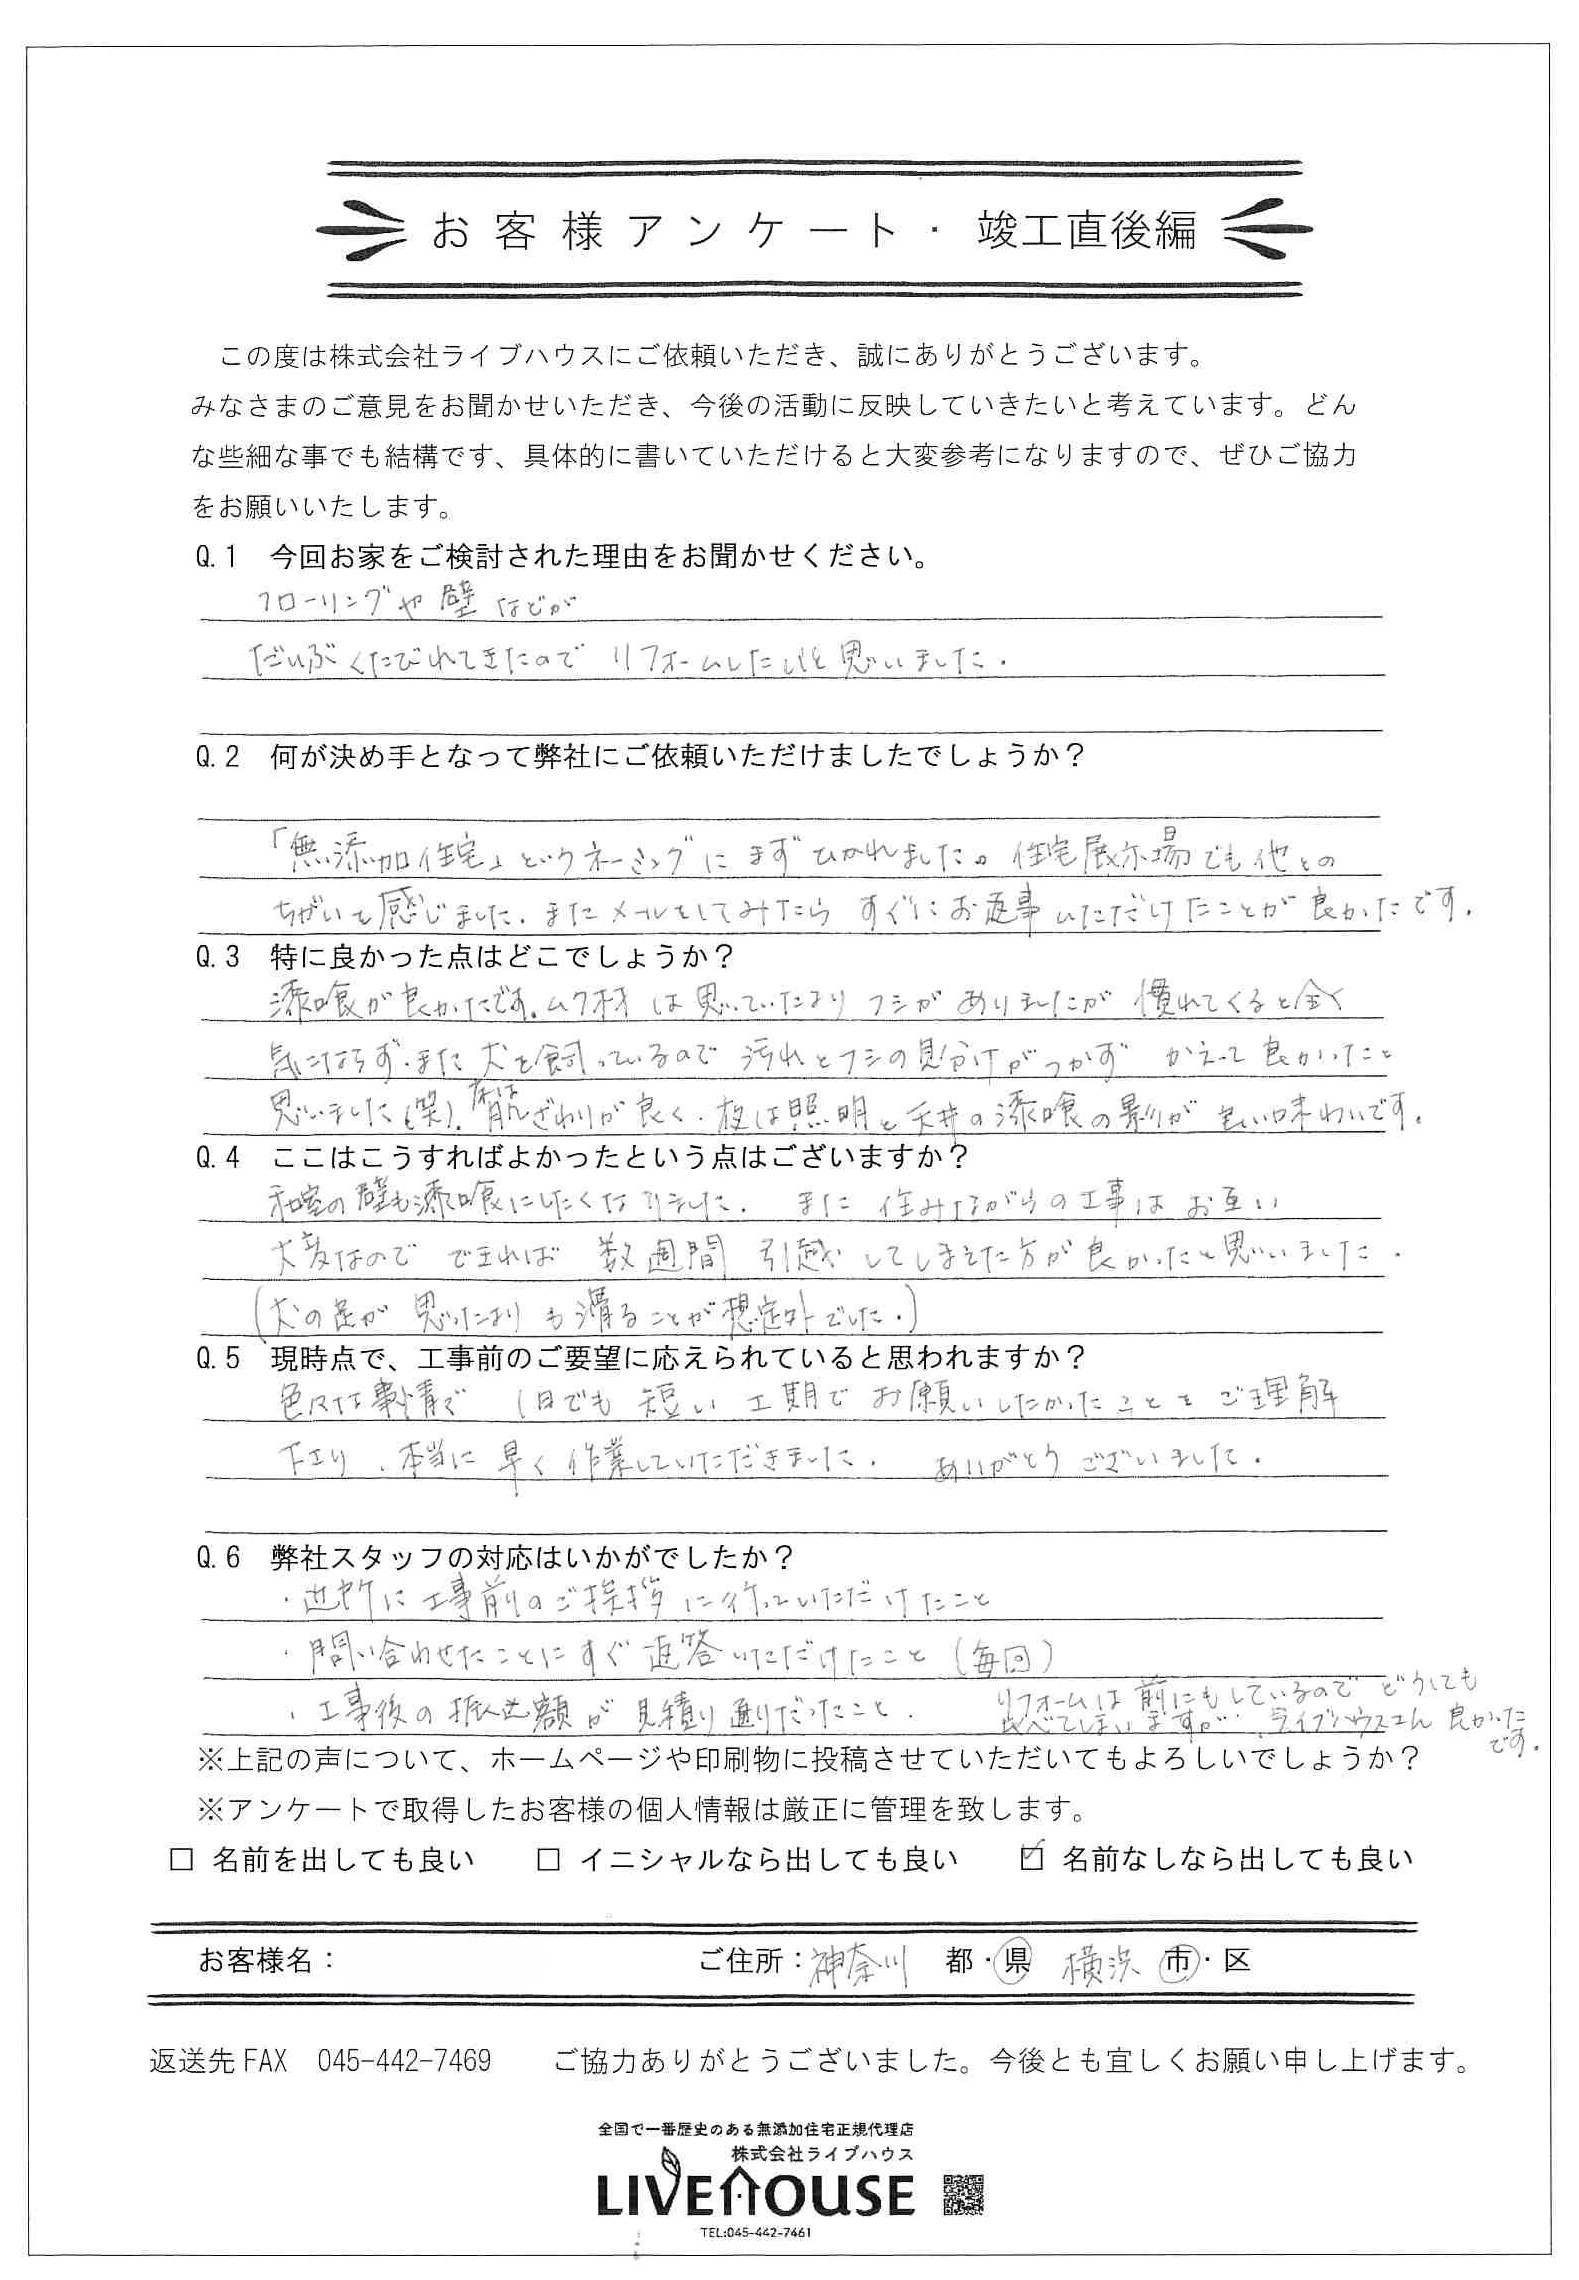 お客様アンケート・竣工直後編
この度は株式会社ライブハウスにご依頼いただき、誠にありがとうございます。
みなさまのご意見をお聞かせいただき、今後の活動に反映していきたいと考えています。どん
な些細な事でも結構です、具体的に書いていただけると大変参考になりますので、ぜひご協力
をお願いいたします。
Q.1 今回お家をご検討された理由をお聞かせください。
フローリングや壁などが
だいぶくたびれてきたのでリフォームしたいと思いました.
Q.2 何が決め手となって弊社にご依頼いただけましたでしょうか？
「無添加住宅」というネーミングにまずひかれました。住宅展示場でも他との
ちがいを感じました.またメールをしてみたらすぐにお返事いただけたことが良かったです.
Q.3 特に良かった点はどこでしょうか？
漆喰が良かったです。ムク材は思っていたよりフシがありましたが慣れてくると全く
気にならず.また犬を飼っているので汚れとフシの見分けがつかずかえって良かったと
思いました(笑).床は肌ざわりが良く.夜は照明と天井の漆喰の影が良い味わいです.
Q.4 ここはこうすればよかったという点はございますか？
和室の壁も漆喰にしたくなりました. また住みながらの工事はお互い
大変なのでできれば数週間引越ししてしまえた方が良かったと思いました.
(犬の足が思ったよりも滑ることが想定外でした.)
Q.5 現時点で、工事前のご要望に応えられていると思われますか？
色々な事情で1日でも短い工期でお願いしたかったことをご理解
下さり、本当に早く作業していただきました. ありがとうございました.
Q.6 弊社スタッフの対応はいかがでしたか？
・近所に工事前のご挨拶に行っていただけたこと
・問い合わせたことにすぐ返答いただけたこと(毎回)
・工事後の振込額が見積り通りだったこと.
リフォームは前にもしているのでどうしても
比べてしまいますが…ライブハウスさん良かった
です.
※上記の声について、ホームページや印刷物に投稿させていただいてもよろしいでしょうか？
※アンケートで取得したお客様の個人情報は厳正に管理を致します。
□ 名前を出しても良い □ イニシャルなら出しても良い ☑ 名前なしなら出しても良い
お客様名： ご住所：神奈川 都・県 横浜 市・区
返送先FAX 045-442-7469 ご協力ありがとうございました。今後とも宜しくお願い申し上げます。
全国で一番歴史のある無添加住宅正規代理店
株式会社ライブハウス
LIVEHOUSE
TEL:045-442-7461